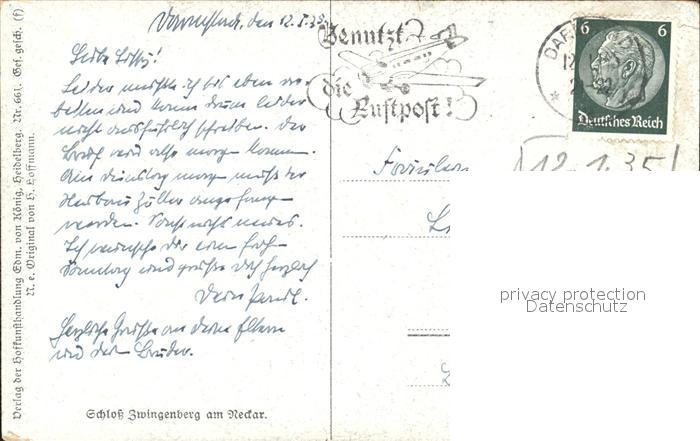 Darmstadt, den 12.I.35.
Liebe Lotty!
Leider mußte ich bis eben ar-
beiten und kann drum leider
nicht ausführlich schreiben. Der
Brief wird also morgen kommen.
Am Dienstag morgen muß der
angefangen
werden. Sonst nichts neues.
Ich wünsche Dir einen frohen
Sonntag und grüße Dich herzlich
Dein
Herzliche Grüße an deine Eltern
und den Bruder.
Schloß Zwingenberg am Neckar.
Verlag der Hofkunsthandlung Edm. von König, Heidelberg. Nr. 661. Ges. gesch. (f)
N. e. Original von H. Hoffmann.
Benutzt
die
Luftpost!
DAR
12
6 6
Deutsches Reich
12.1.35
Fräulein
privacy protection
Datenschutz